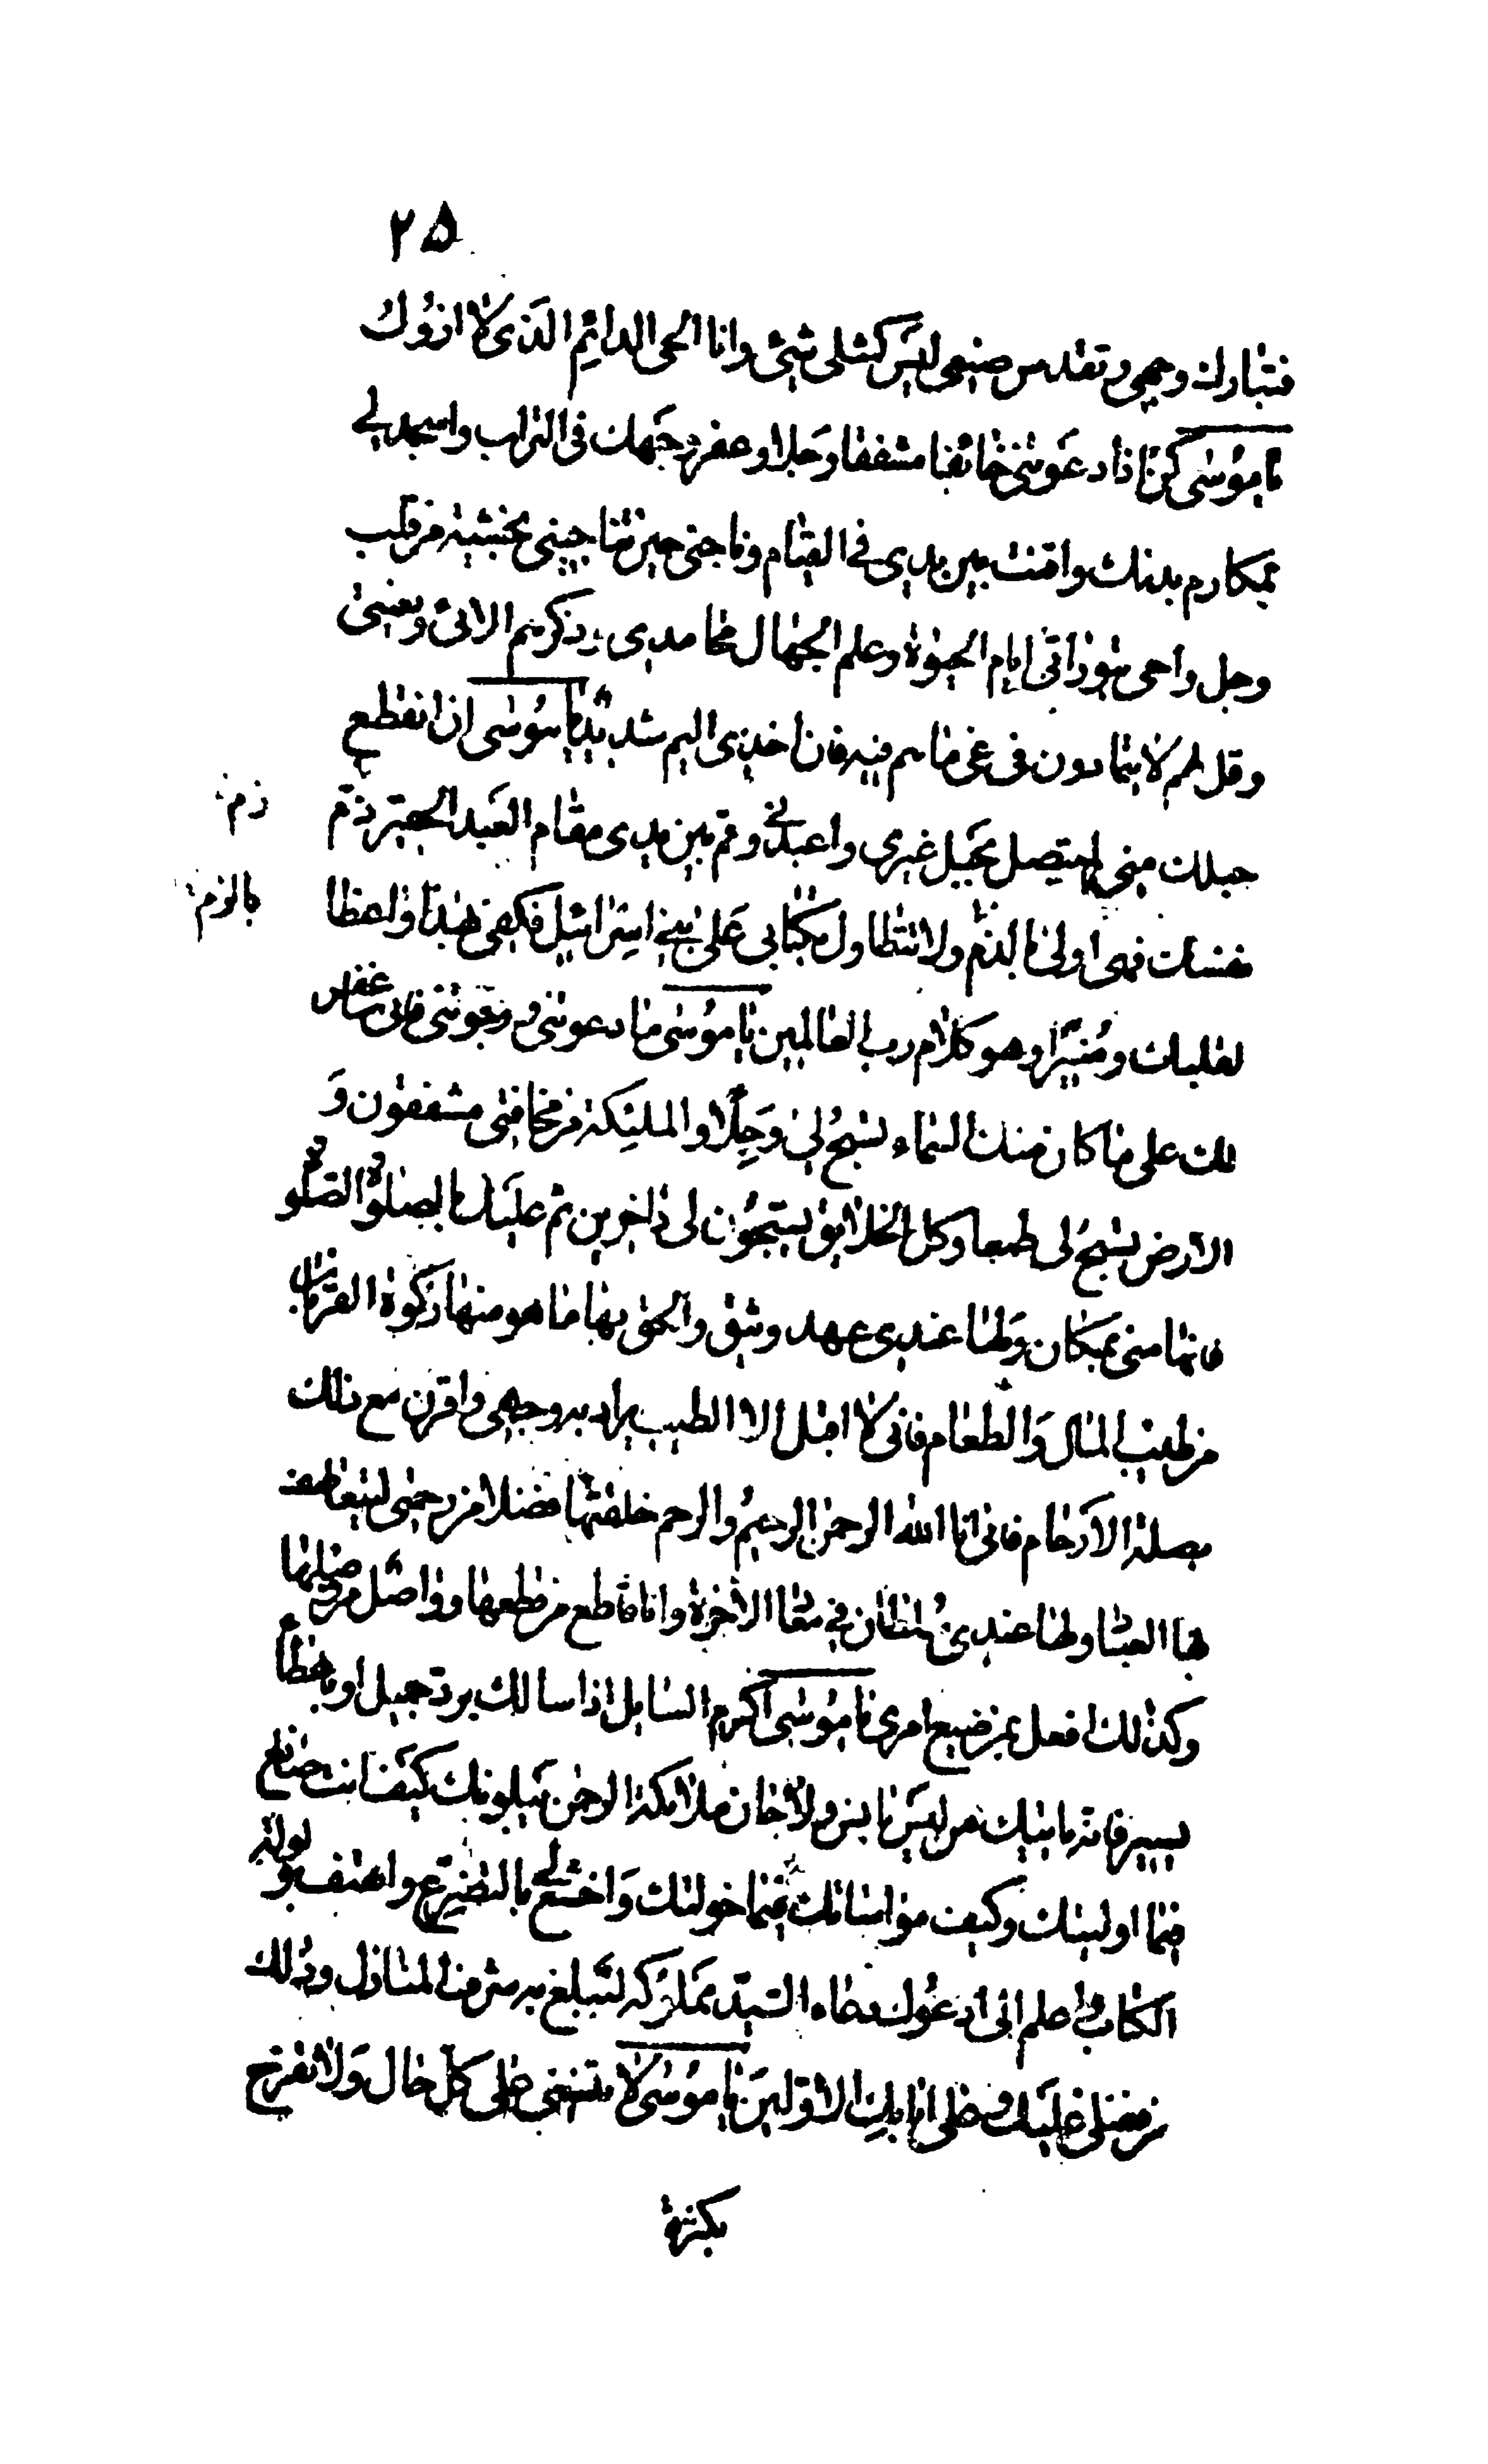 ٢٥
فتبارك وجهى وتقدس صنيعى ليس كمثلى شيئ وانا الحى الدائم الذى لا ازول
يا موسى كن اذا دعوتنى خائفا مشفقا وجلا وعفر وجهك فى التراب واسجد لي
بمكارم بدنك واقنت بين يدي في القيام وناجنى حين تناجيني بخشية من قلب
وجل واحى بتوراتى ايام الحيوة وعلم الجهال محامدى وذكرهم الائى ونعمتى
وقل لهم لا يتمادون فى غى ما هم فيه فان اخذى اليم شديد يا موسى ان انقطع
حبلك منى لم يتصل بحبل غيرى واعبدنى وقم بين يدى مقام العبد الحقير ذم
ذم
نفسك فهى اولى بالذم ولا تتطاول بكتابى على بني اسرائيل فكفى بهذا واعظا
بالذم
لقلبك ومنيرا وهو كلام رب العالمين يا موسى ما دعوتنى ورجوتنى فانى ساغفر
لك على ما كان منك السماء تسبح لي وجلا والملئكة من مخافتى مشفقون و
الارض تسبح لى طمعا وكل الخلايق يسبحون لى داخرين ثم عليك بالصلوة الصلوة
فانها منى بمكان ولها عندى عهد وثيق والحق بها ما هو منها زكوة القربان
من طيب المال والطعام فانى لا اقبل الا الطيب يراد به وجهى واقرن مع ذلك
بصلة الارحام فانى انا الله الرحمن الرحيم والرحم خلقتها فضلا من رحمتى ليتعاطف
بها العباد ولها عندى سلطان في معاد الاخرة وانا قاطع من قطعها وواصل من وصلها
وكذلك افعل بمن ضيع امرى يا موسى اكرم السايل اذا سالك برد جميل او باعطاء
يسير فانه ياتيك من ليس بانس ولا جان ملائكة الرحمن يبلونك كيف انت صانع
فيما اوليتك وكيف مواساتك فيما خولتك واخشع لي بالتضرع واهتف بولولة
الكتاب واعلم انى ادعوك دعاء السيد مملوكه لتبلغ به شرف المنازل وذلك
من فضلى عليك وعلى ابائك الاولين يا موسى لا تنسنى على كل حال ولا تفرح
بكثرة